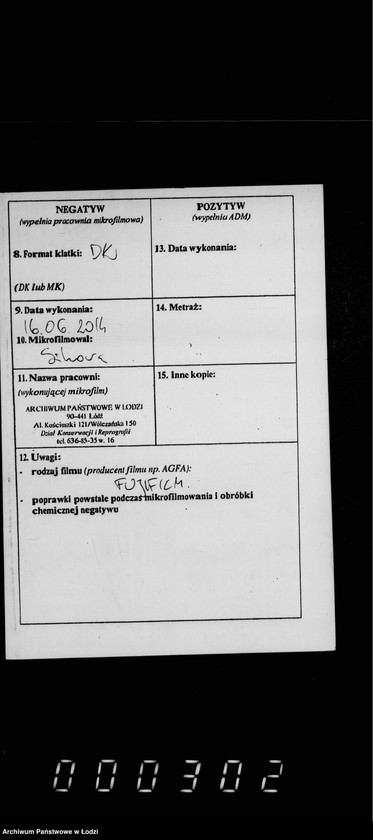 NEGATYW
(wypełnia pracownia mikrofilmowa)
8. Format klatki: DK
(DK lub MK)
POZYTYW
(wypełnia ADM)
13. Data wykonania:
9. Data wykonania:
16.06.2014
10. Mikrofilmował:
14. Metraż:
11. Nazwa pracowni:
(wykonującej mikrofilm)
ARCHIWUM PAŃSTWOWE W ŁODZI
90-441 Łódź
Al. Kościuszki 121/Wólczańska 150
Dział Konserwacji i Reprografii
tel. 636-85-35 w. 16
15. Inne kopie:
12. Uwagi:
- rodzaj filmu (producent filmu np. AGFA):
FUJIFILM.
- poprawki powstałe podczas mikrofilmowania i obróbki
chemicznej negatywu
000302
Archiwum Państwowe w Łodzi